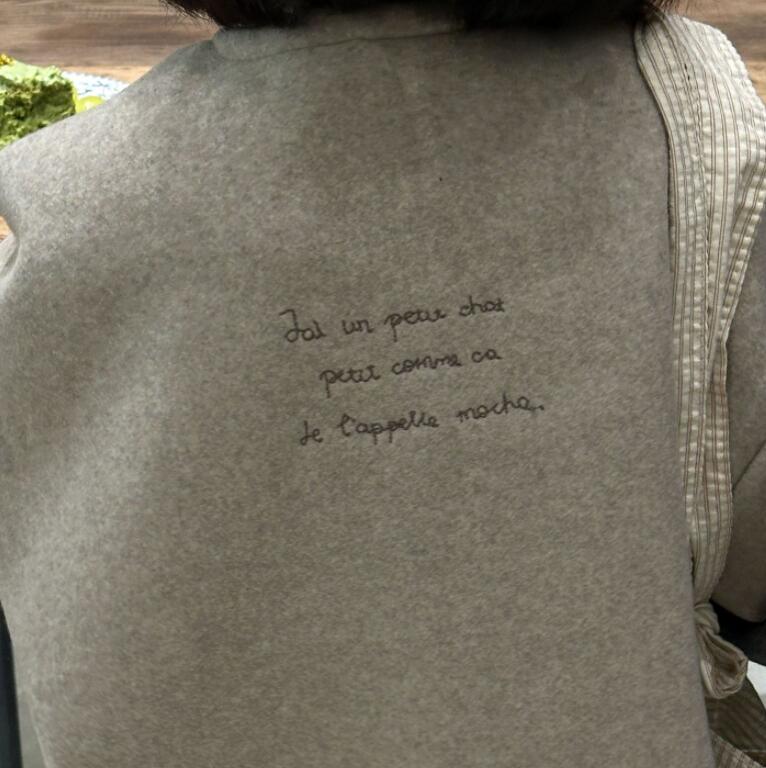 Jai un petit chat
petit comme ca
Je l'appelle mocha.